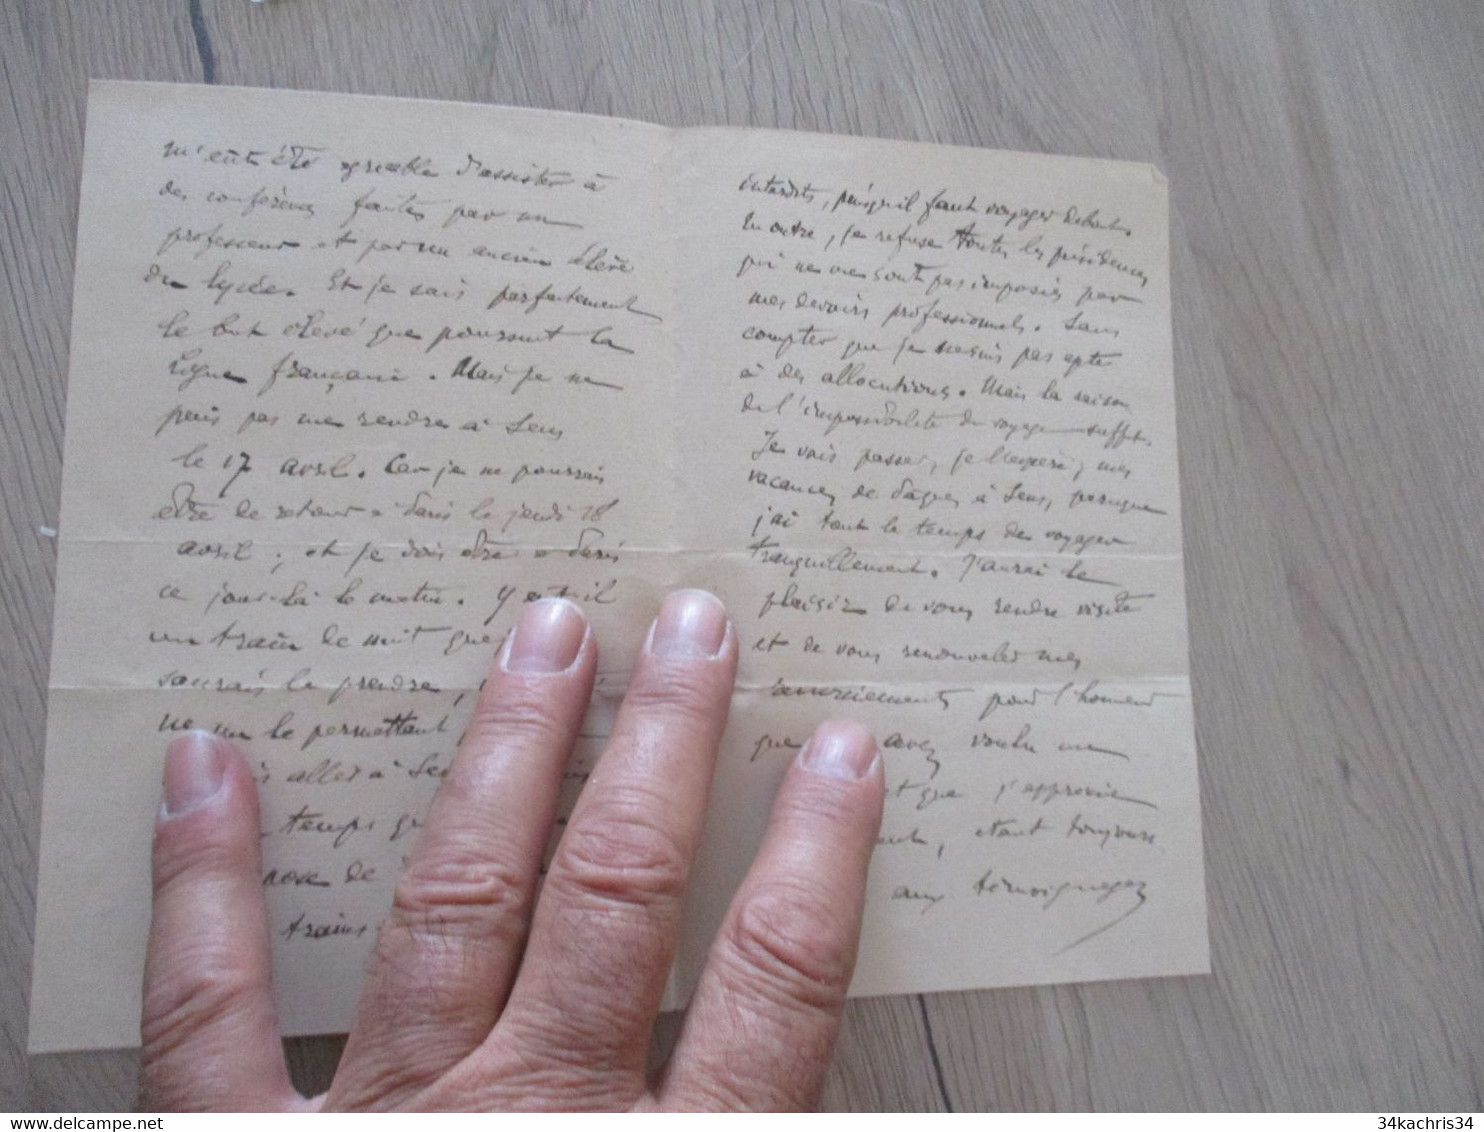 m'eût été agréable d'assister à
des conférences faites par un
professeur et par un ancien élève
du lycée. Et je sais parfaitement
le but élevé que poursuit la
Ligue française. Mais je ne
puis pas me rendre à Sens
le 17 avril. Car je ne pourrais
être de retour à Paris le jeudi 18
avril ; et je dois être à Paris
ce jour-là le matin. Y a-t-il
un train de nuit que
saurais le prendre,
ne me le permettent
allez à
temps
de
trains
interdits, puisqu'il faut voyager debout.
En outre, je refuse toutes les présidences
qui ne me sont pas imposées par
mes devoirs professionnels. Sans
compter que je ne suis pas apte
à des allocutions. Mais la raison
de l'impossibilité du voyage suffit.
Je vais passer, je l'espère, mes
vacances de Pâques à Sens, puisque
j'ai tout le temps de voyager
tranquillement. J'aurai le
plaisir de vous rendre visite
et de vous renouveler mes
remerciements pour l'honneur
que avez voulu me
et que j'apprécie
étant toujours
aux témoignages
www.delcampe.net
34kachris34